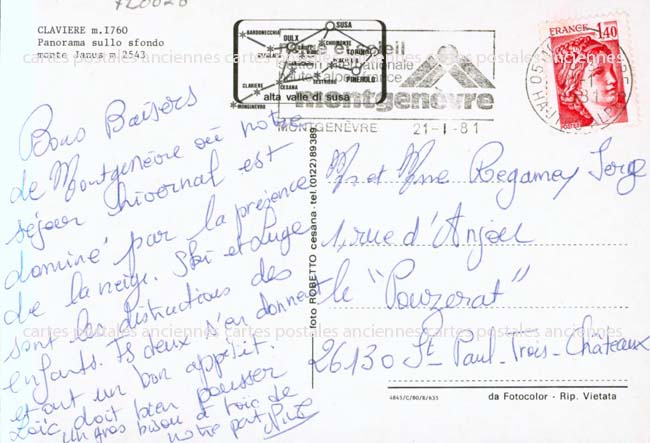 CLAVIERE m.1760
Panorama sullo sfondo
monte Janus m 2543
BARDONECCHIA
SUSA
OULX
TORINO
CHIOMONTE
CLAVIERE
CESANA
SESTRIERE
PINEROLO
MONGINEVRO
alta valle di susa
neige et soleil
station internationale
montgenèvre
MONTGENÈVRE 21-1-81
FRANCE
1,40
cartes postales anciennes cartes postales anciennes cartes postales anciennes
Bons Baisers
de Montgenèvre où notre
séjour hivernal est
dominé par la présence
de la neige. Ski et Luge
sont les distractions des
enfants. Ts deux s'en donnent
et ont un bon appétit.
Loïc doit bien pousser
un gros bisou à toic de
notre part
foto ROBETTO cesana - tel.(0122)89389
Mr et Mme Regamey Serge
1, rue d'Anjou
le "Pouzerat"
26130 St Paul-Trois-Châteaux
cartes postales anciennes cartes postales anciennes cartes postales anciennes
4845/C/80/B/635
da Fotocolor - Rip. Vietata